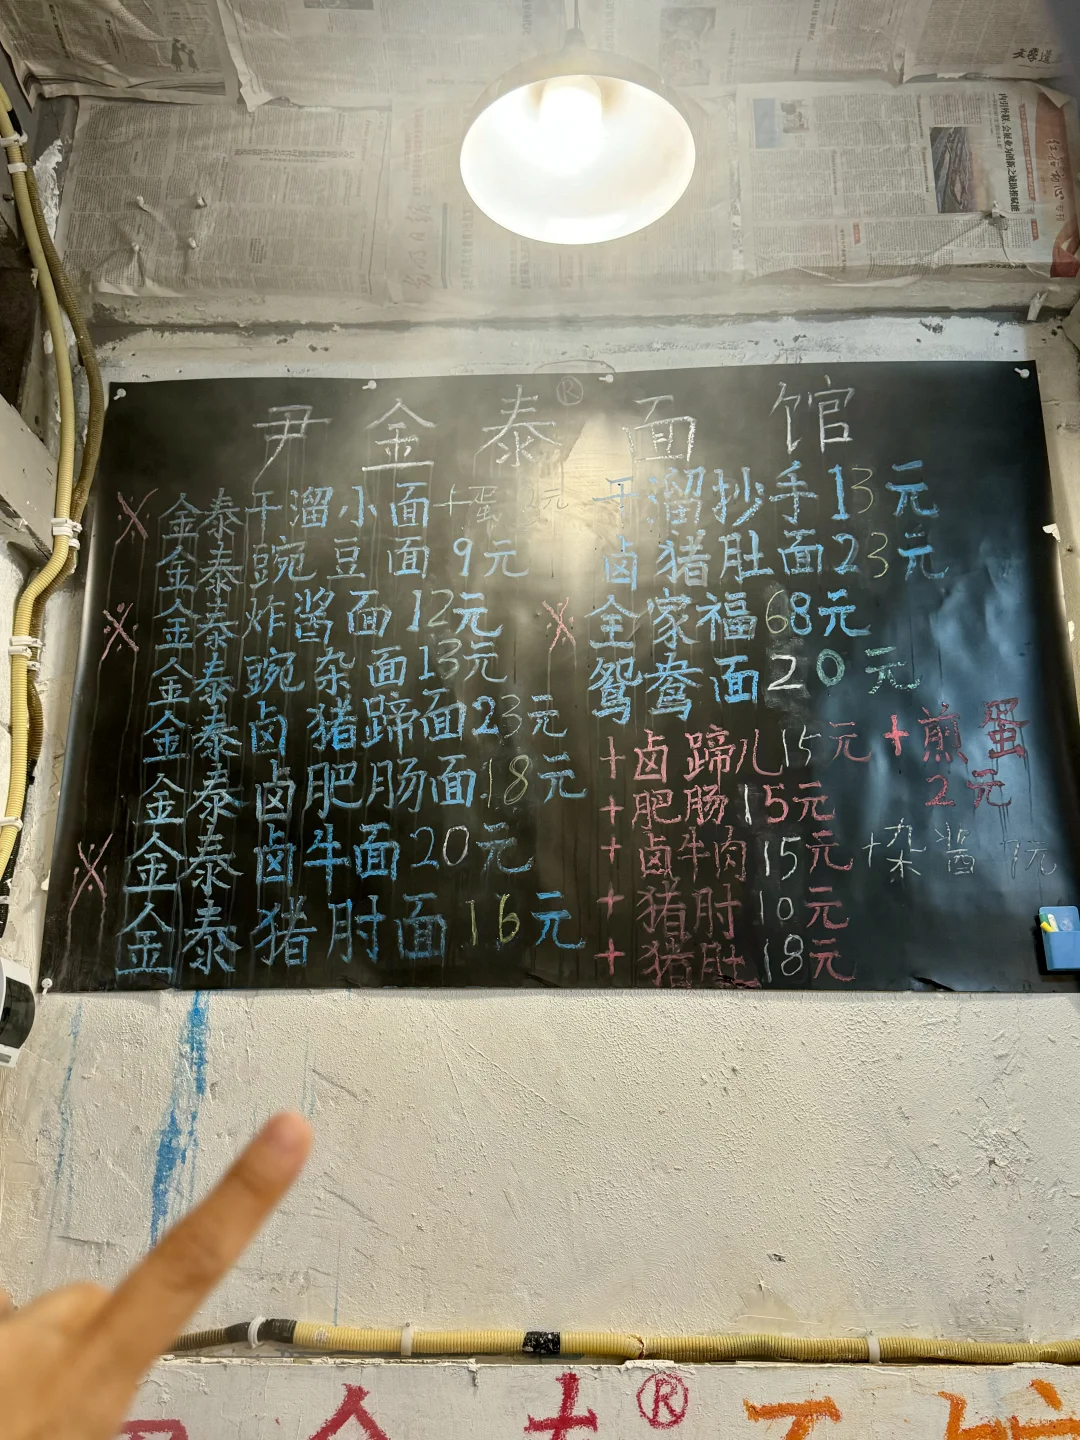 尹金泰®面馆
金泰干溜小面+蛋 元
金泰豌豆面9元
金泰炸酱面12元
金泰豌杂面13元
金泰卤猪蹄面23元
金泰卤肥肠面18元
金泰卤牛面20元
金泰猪肘面16元
干溜抄手13元
卤猪肚面23元
全家福68元
鸳鸯面20元
+卤蹄儿15元
+肥肠15元
+卤牛肉15元
+猪肘10元
+猪肚18元
+煎蛋
2元
+杂酱7元
®